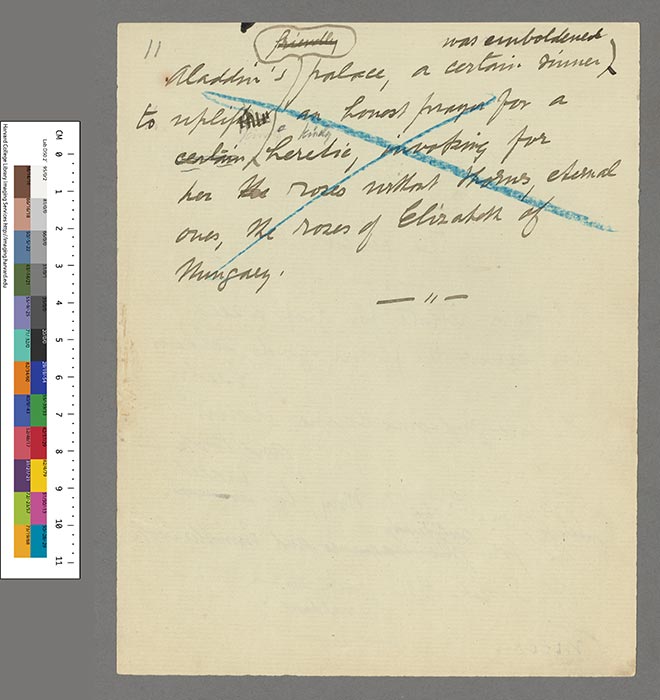 11
friendly
was emboldened
Aladdin's palace, a certain sinner,
to uplift an honest prayer for a
kindly
certain heretic, invoking for
her the roses without thorns, eternal
ones, the roses of Elizabeth of
Hungary.
— " —
Harvard College Library Imaging Services http://imaging.harvard.edu
CM 0 1 2 3 4 5 6 7 8 9 10 11